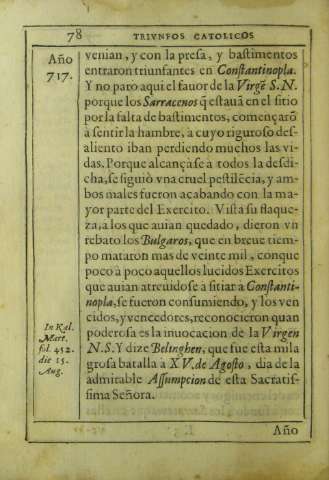 78 TRIVNFOS CATOLICOS
Año
717.
venian, y con la presa, y bastimentos
entraron triunfantes en Constantinopla.
Y no paro aqui el fauor de la Virgẽ S. N.
porque los Sarracenos q̃ estauã en el sitio
por la falta de bastimentos, començarõ
à sentir la hambre, a cuyo riguroso des-
aliento iban perdiendo muchos las vi-
das. Porque alcançase à todos la desdi-
cha, se siguiò vna cruel pestilẽcia, y am
bos males fueron acabando con la ma-
yor parte del Exercito. Vista su flaque-
za, a los que auian quedado, dieron vn
rebato los Bulgaros, que en breue tiem-
po mataron mas de veinte mil, conque
poco à poco aquellos lucidos Exercitos
que auian atreuidose à sitiar a Constanti-
nopla, se fueron consumiendo, y los ven
cidos, y vencedores, reconocieron quan
poderosa es la inuocacion de la Virgen
N. S. Y dize Belinghen, que fue esta mila
grosa batalla à XV. de Agosto, dia de la
admirable Assumpcion de esta Sacratis-
sima Señora.
In Kal.
Mart.
fol. 452.
die 15.
Aug.
Año